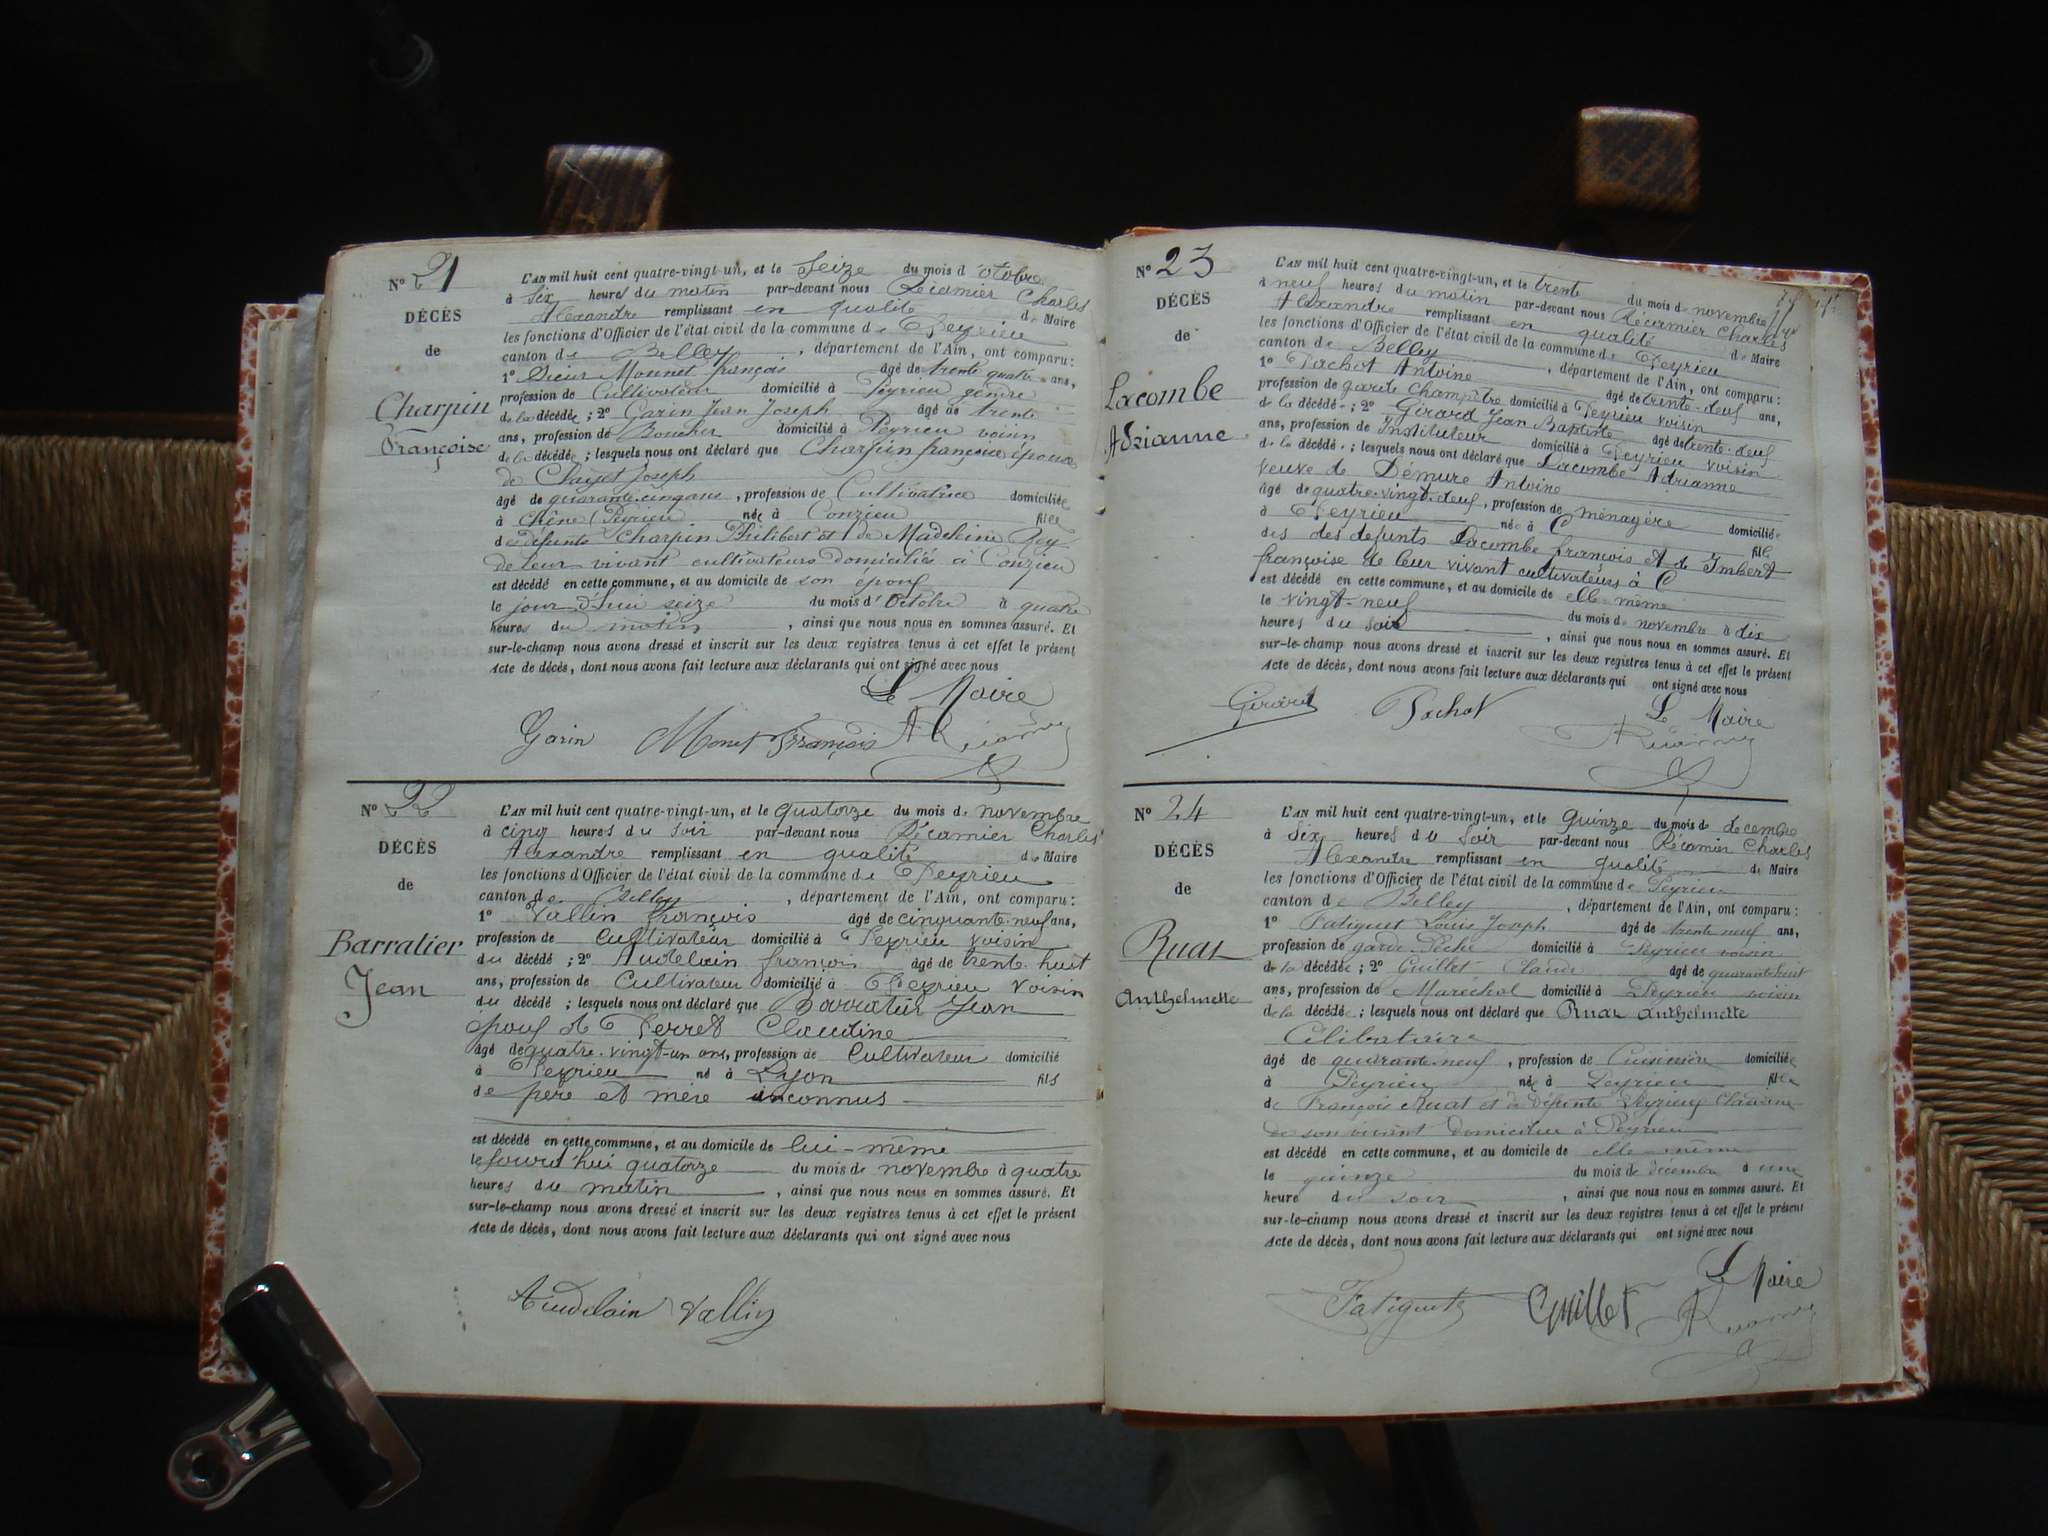 N° 21
DÉCÈS
de
Charpin
Françoise
L'AN mil huit cent quatre-vingt-un, et le Seize du mois d'octobre
à six heures du matin par-devant nous Récamier Charles
Alexandre remplissant en qualité de Maire
les fonctions d'Officier de l'état civil de la commune de Peyrieu
canton de Belley, département de l'Ain, ont comparu:
1° Sieur Monnet françois âgé de trente quatre ans,
profession de Cultivateur domicilié à Peyrieu gendre
de la décédée; 2° Garin Jean Joseph âgé de trente
ans, profession de Boucher domicilié à Peyrieu voisin
de la décédée; lesquels nous ont déclaré que Charpin françoise épouse
de Joseph
âgé de quarante cinq ans, profession de Cultivatrice domiciliée
à Chêne (Peyrieu née à Conzieu fille
des défunts Charpin Philibert et de Madeleine Rey
de leur vivant cultivateurs domiciliés à Conzieu
est décédé en cette commune, et au domicile de son époux
le jour d'hui seize du mois d'Octobre à quatre
heures du matin, ainsi que nous nous en sommes assuré. Et
sur-le-champ nous avons dressé et inscrit sur les deux registres tenus à cet effet le présent
Acte de décès, dont nous avons fait lecture aux déclarants qui ont signé avec nous
Le Maire
Garin Monet François A Récamier
N° 22
DÉCÈS
de
Barratier
Jean
L'AN mil huit cent quatre-vingt-un, et le quatorze du mois de novembre
à cinq heures du soir par-devant nous Récamier Charles
Alexandre remplissant en qualité de Maire
les fonctions d'Officier de l'état civil de la commune de Peyrieu
canton de Belley, département de l'Ain, ont comparu:
1° Vallin François âgé de cinquante-neuf ans,
profession de Cultivateur domicilié à Peyrieu voisin
du décédé; 2° Audelain françois âgé de trente-huit
ans, profession de Cultivateur domicilié à Peyrieu Voisin
du décédé; lesquels nous ont déclaré que Barratier Jean
époux de Perret Claudine
âgé de quatre-vingt-un ans, profession de Cultivateur domicilié
à Peyrieu né à Lyon fils
de père et mère inconnus
est décédé en cette commune, et au domicile de lui-même
le jourd'hui quatorze du mois de novembre à quatre
heures du matin, ainsi que nous nous en sommes assuré. Et
sur-le-champ nous avons dressé et inscrit sur les deux registres tenus à cet effet le présent
Acte de décès, dont nous avons fait lecture aux déclarants qui ont signé avec nous
Audelain Vallin
N° 23
DÉCÈS
de
Lacombe
Adrianne
L'AN mil huit cent quatre-vingt-un, et le trente du mois de novembre
à neuf heures du matin par-devant nous Récamier Charles
Alexandre remplissant en qualité de Maire
les fonctions d'Officier de l'état civil de la commune de Peyrieu
canton de Belley, département de l'Ain, ont comparu:
1° Pachot Antoine âgé de trente-deux ans,
profession de garde champêtre domicilié à Peyrieu voisin
de la décédée; 2° Girard Jean Baptiste âgé de trente-deux
ans, profession de Instituteur domicilié à Peyrieu voisin
de la décédée; lesquels nous ont déclaré que Lacombe Adrianne
veuve de Démure Antoine
âgé de quatre-vingt-deux, profession de ménagère domiciliée
à Peyrieu née à C fille
des des défunts Lacombe françois et de Imbert
françoise de leur vivant cultivateurs à C
est décédé en cette commune, et au domicile de elle-même
le vingt-neuf du mois de novembre à dix
heures du soir, ainsi que nous nous en sommes assuré. Et
sur-le-champ nous avons dressé et inscrit sur les deux registres tenus à cet effet le présent
Acte de décès, dont nous avons fait lecture aux déclarants qui ont signé avec nous
Girard Pachot Le Maire
A Récamier
N° 24
DÉCÈS
de
Ruat
Anthelmette
L'AN mil huit cent quatre-vingt-un, et le quinze du mois de décembre
à Six heures du Soir par-devant nous Récamier Charles
Alexandre remplissant en qualité de Maire
les fonctions d'Officier de l'état civil de la commune de Peyrieu
canton de Belley, département de l'Ain, ont comparu:
1° Fatiguet Louis Joseph âgé de trente neuf ans,
profession de garde Pêche domicilié à Peyrieu voisin
de la décédée; 2° Guillet Claude âgé de quarante huit
ans, profession de Maréchal domicilié à Peyrieu voisin
de la décédée; lesquels nous ont déclaré que Ruat anthelmette
Célibataire
âgé de quarante-neuf, profession de Cuisinière domiciliée
à Peyrieu née à Peyrieu fille
de François Ruat et de défunte Peyrieu Claudine
de son vivant domiciliée à Peyrieu
est décédé en cette commune, et au domicile de elle-même
le quinze du mois de décembre à une
heure du soir, ainsi que nous nous en sommes assuré. Et
sur-le-champ nous avons dressé et inscrit sur les deux registres tenus à cet effet le présent
Acte de décès, dont nous avons fait lecture aux déclarants qui ont signé avec nous
Le Maire
Fatiguet Guillet A Récamier